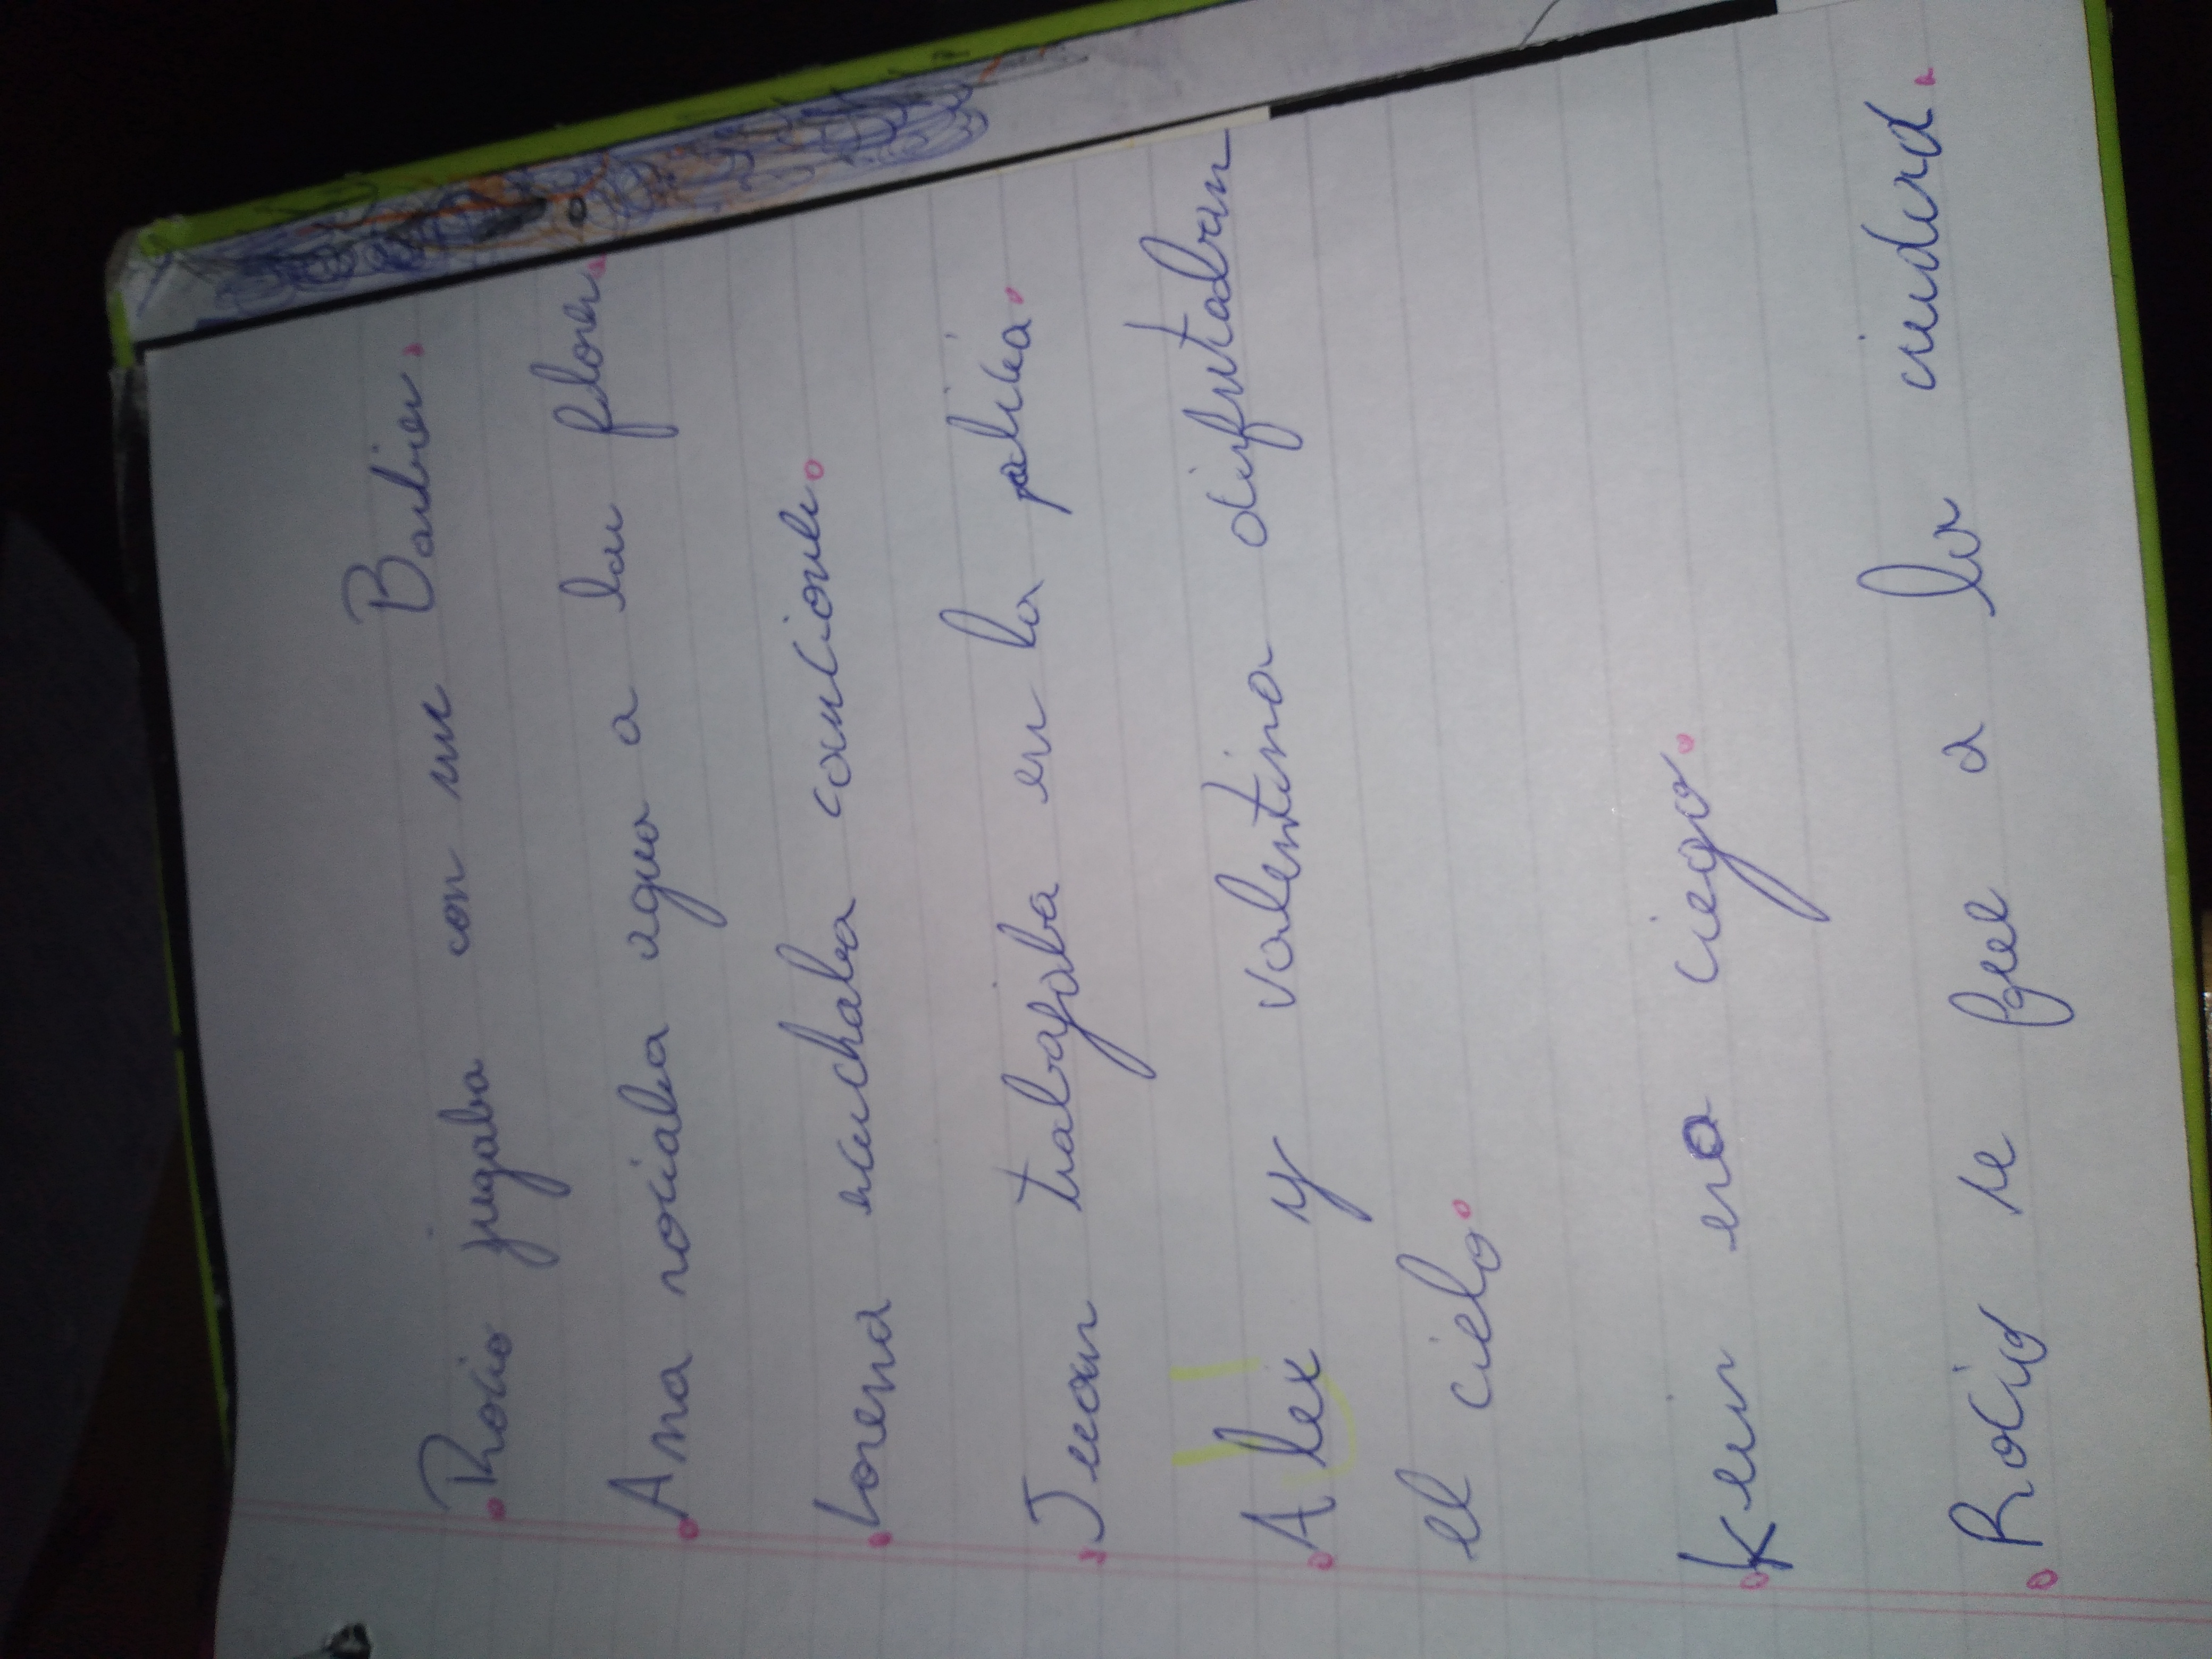 Rocio jugaba con sus Barbies.
Ana rociaba agua a las flores.
Lorena escuchaba canciones.
Juan trabajaba en la policia.
Alex y valentina disfrutaban
el cielo.
Keiv era ciego.
Rocio se fue a la ciudad.